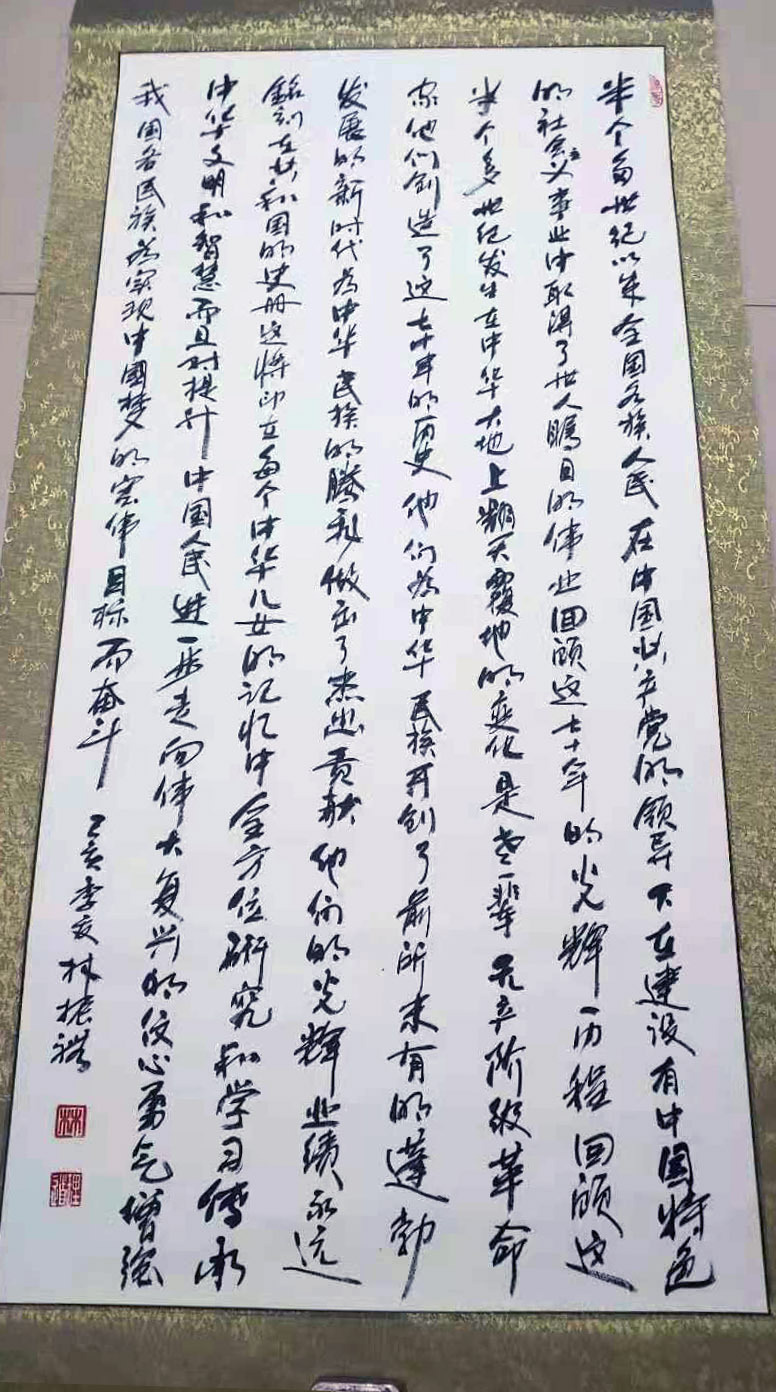 半个多世纪以来全国各族人民在中国共产党的领导下在建设有中国特色
的社会主义事业中取得了世人瞩目的伟业回顾这七十年的光辉历程回顾这
半个多世纪发生在中华大地上翻天覆地的变化是老一辈无产阶级革命
家他们创造了这七十年的历史他们为中华民族开创了前所未有的蓬勃
发展的新时代为中华民族的腾飞做出了杰出贡献他们的光辉业绩永远
铭刻在共和国的史册这将印在每个中华儿女的记忆中全方位研究和学习传承
中华文明和智慧而且对提升中国人民进一步走向伟大复兴的信心勇气增强
我国各民族为实现中國梦的宏伟目标而奋斗
己亥季夏林振
林